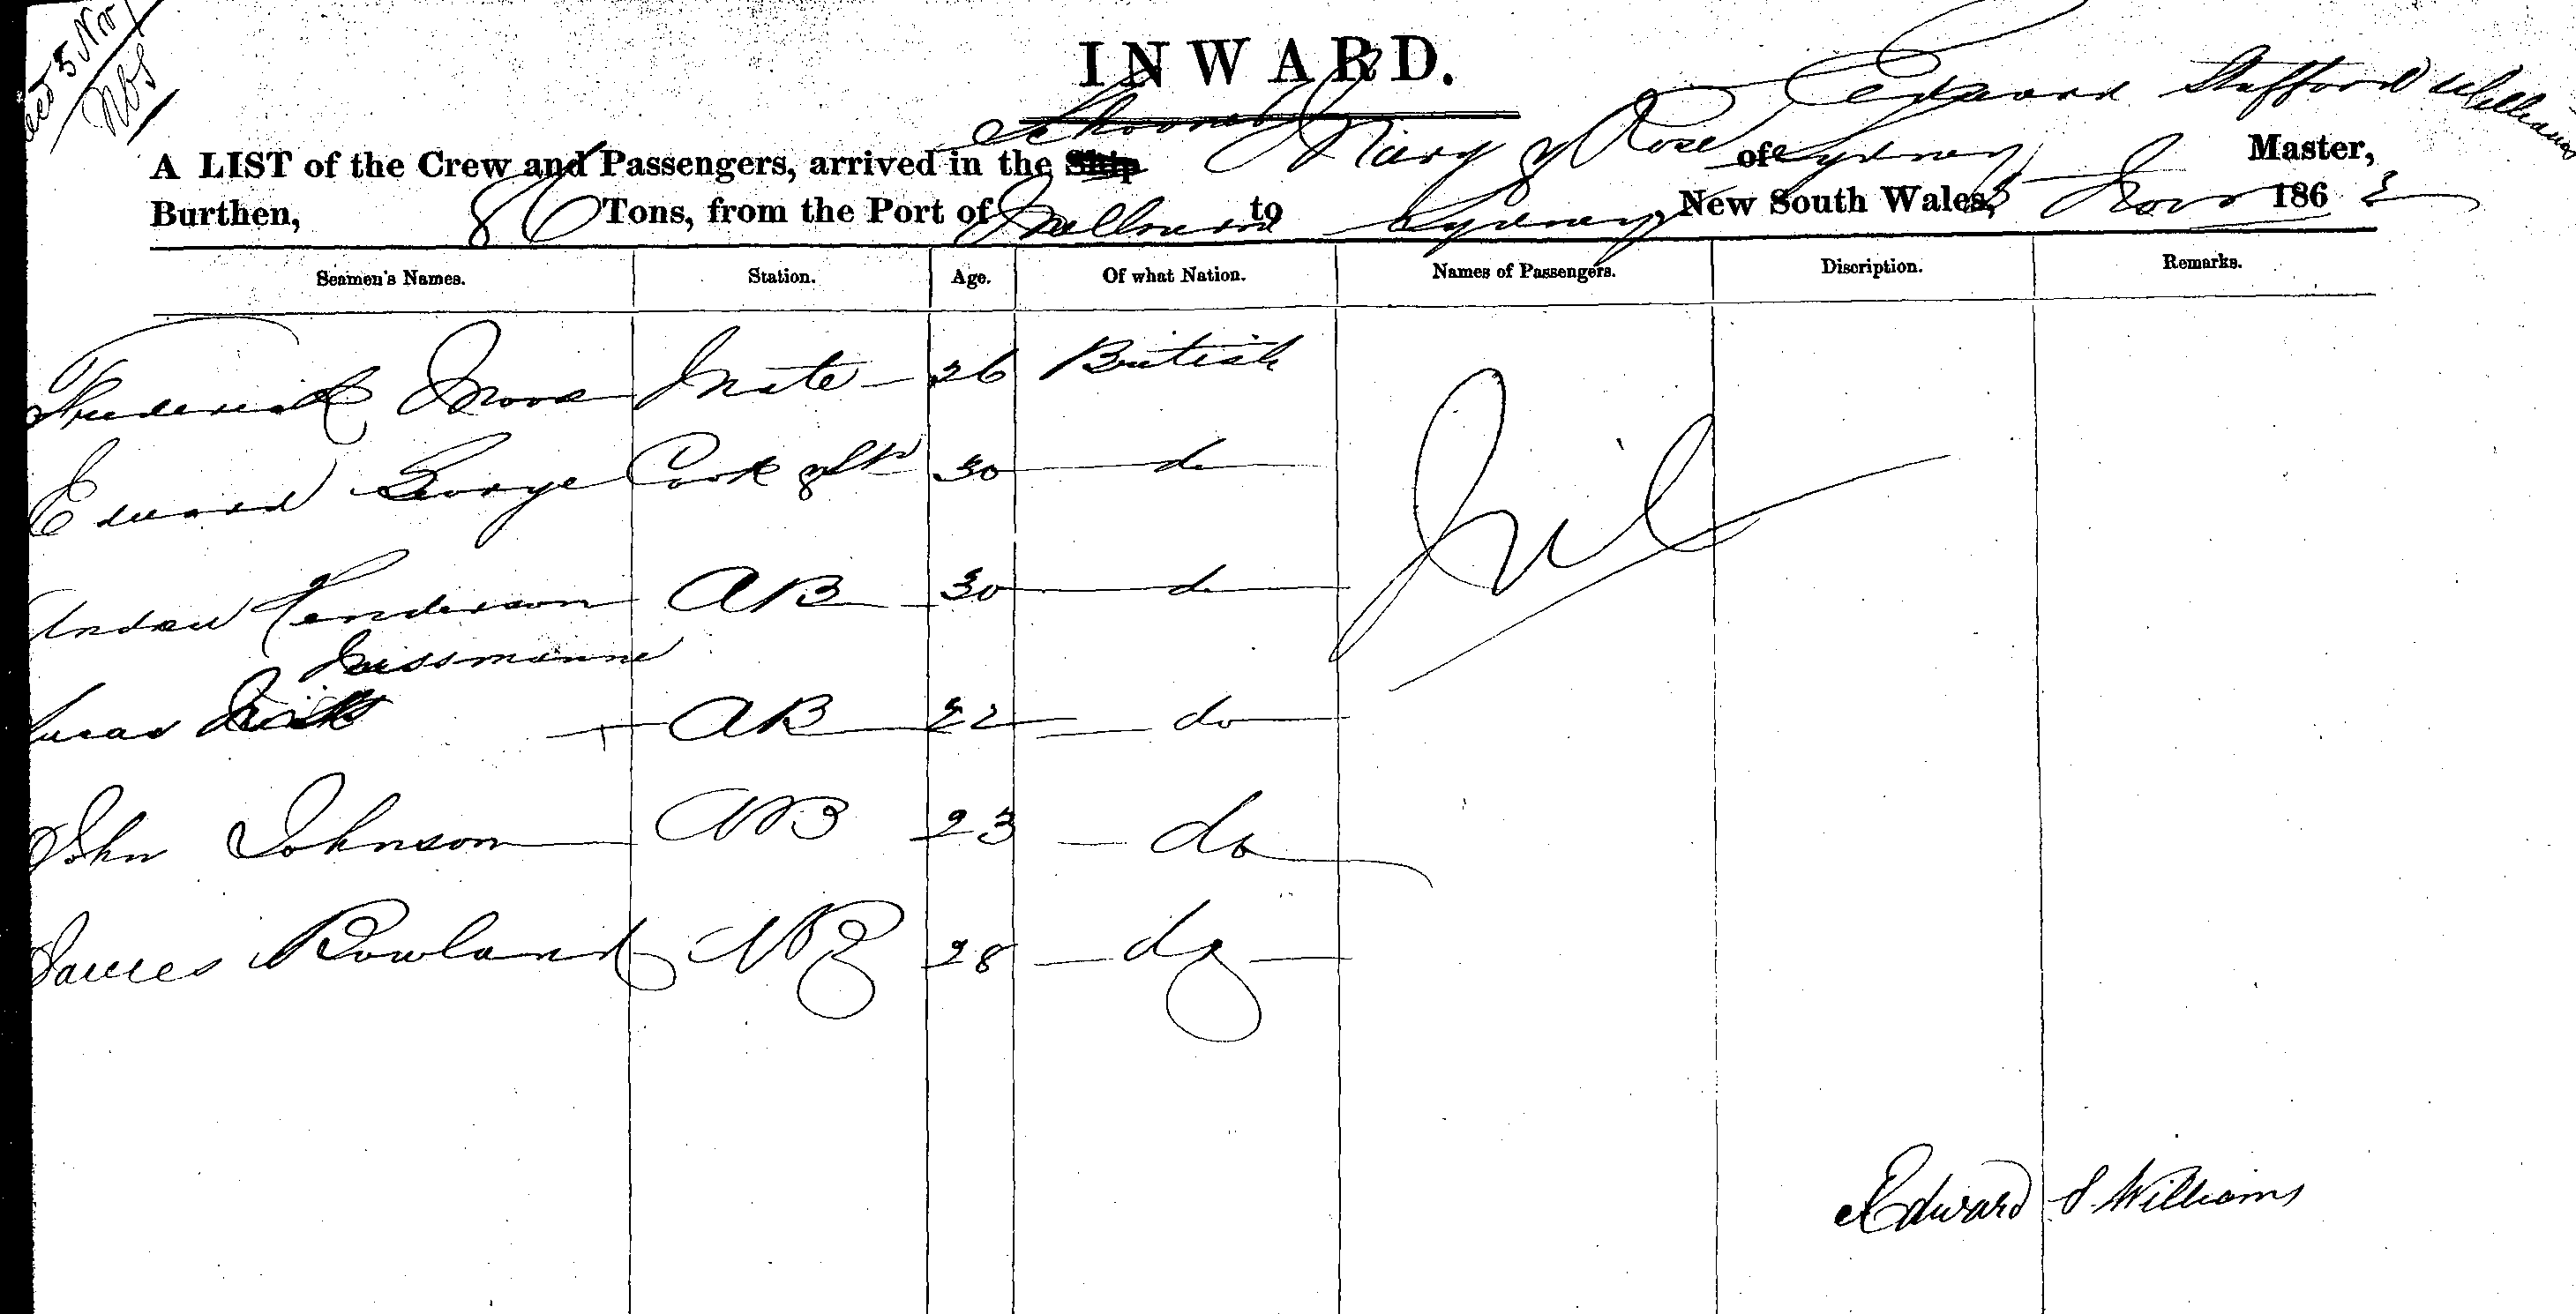 5 Nov
INWARD.
A LIST of the Crew and Passengers, arrived in the Ship Schooner Mary & Rose of Sydney Edward Stafford Williams Master,
Burthen, 86 Tons, from the Port of Melbourne to Sydney New South Wales, 5 Nov 1863
Seamen's Names. Station. Age. Of what Nation. Names of Passengers. Discription. Remarks.
Frederick Mate 26 British Nil
Edward George Cook & St 30 do
Andrew Henderson AB 30 do
Lucas AB 22 do
John Johnson AB 23 do
James Rowland 28 do
Edward S. Williams